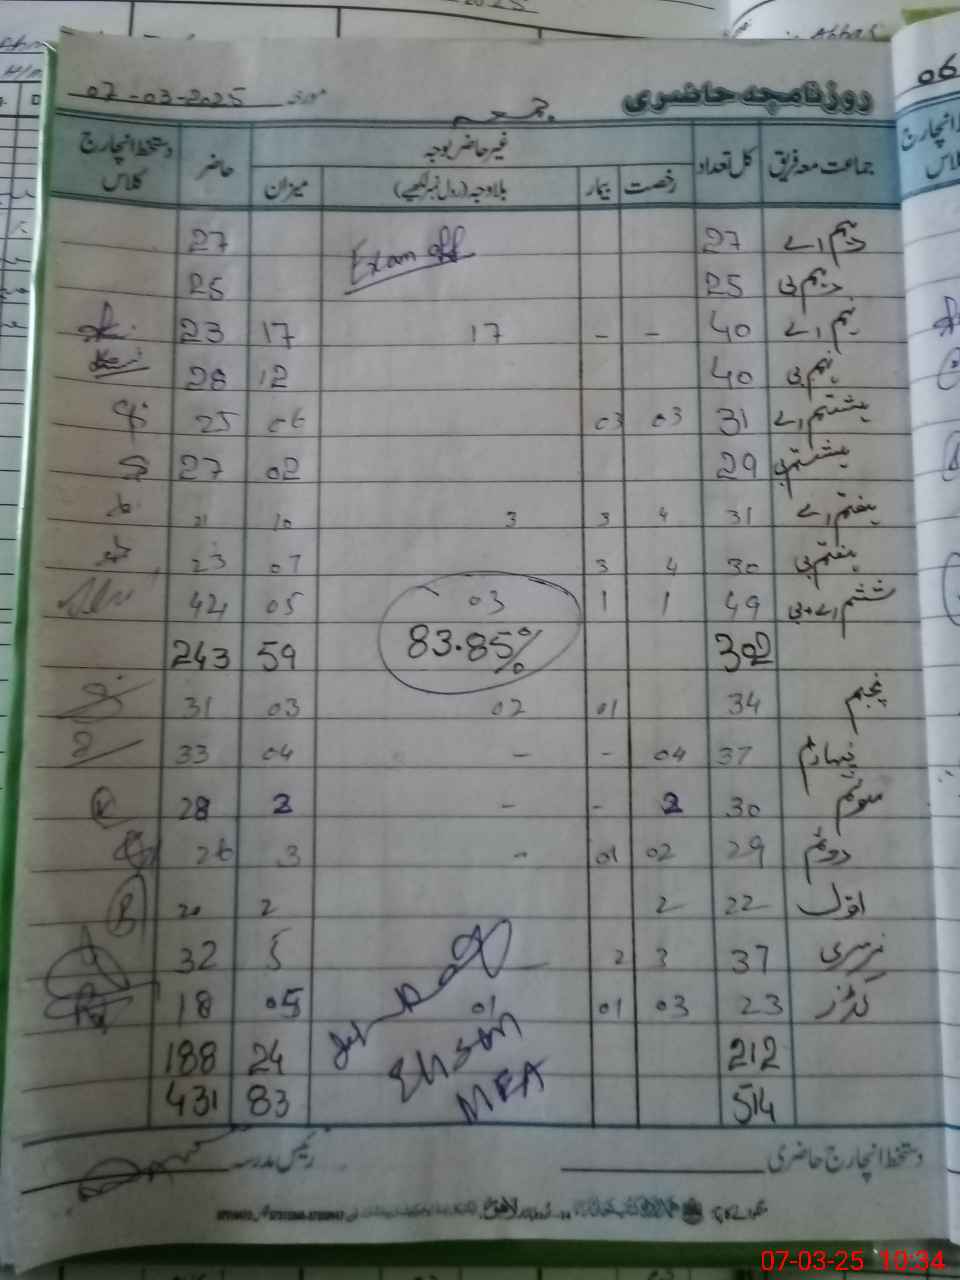 روزنامچہ حاضری
جمعہ
مورخہ 07-03-2025
جماعت معہ فریق کل تعداد غیر حاضر بوجہ حاضر دستخط انچارج کلاس
رخصت بیمار بلاوجہ (رول نمبر لکھیے) میزان
دہم اے 27 Exam off 27
دہم بی 25 25
نہم اے 40 - - 17 17 23
نہم بی 40 12 28
ہشتم اے 31 03 03 06 25
ہشتم بی 29 02 27
ہفتم اے 31 4 3 3 10 21
ہفتم بی 30 4 3 07 23
ششم اے + بی 49 1 1 03 05 44
302 83.85% 59 243
پنجم 34 01 02 03 31
چہارم 37 04 - - 04 33
سوئم 30 2 - - 2 28
دوئم 29 02 01 - 3 26
اوّل 22 2 2 20
نرسری 37 3 2 5 32
کڈز 23 03 01 01 05 18
212 24 188
514 83 431
Ehsan
MEA
دستخط انچارج حاضری
رئیس مدرسہ
06
انچارج
کلاس
07-03-25 10:34